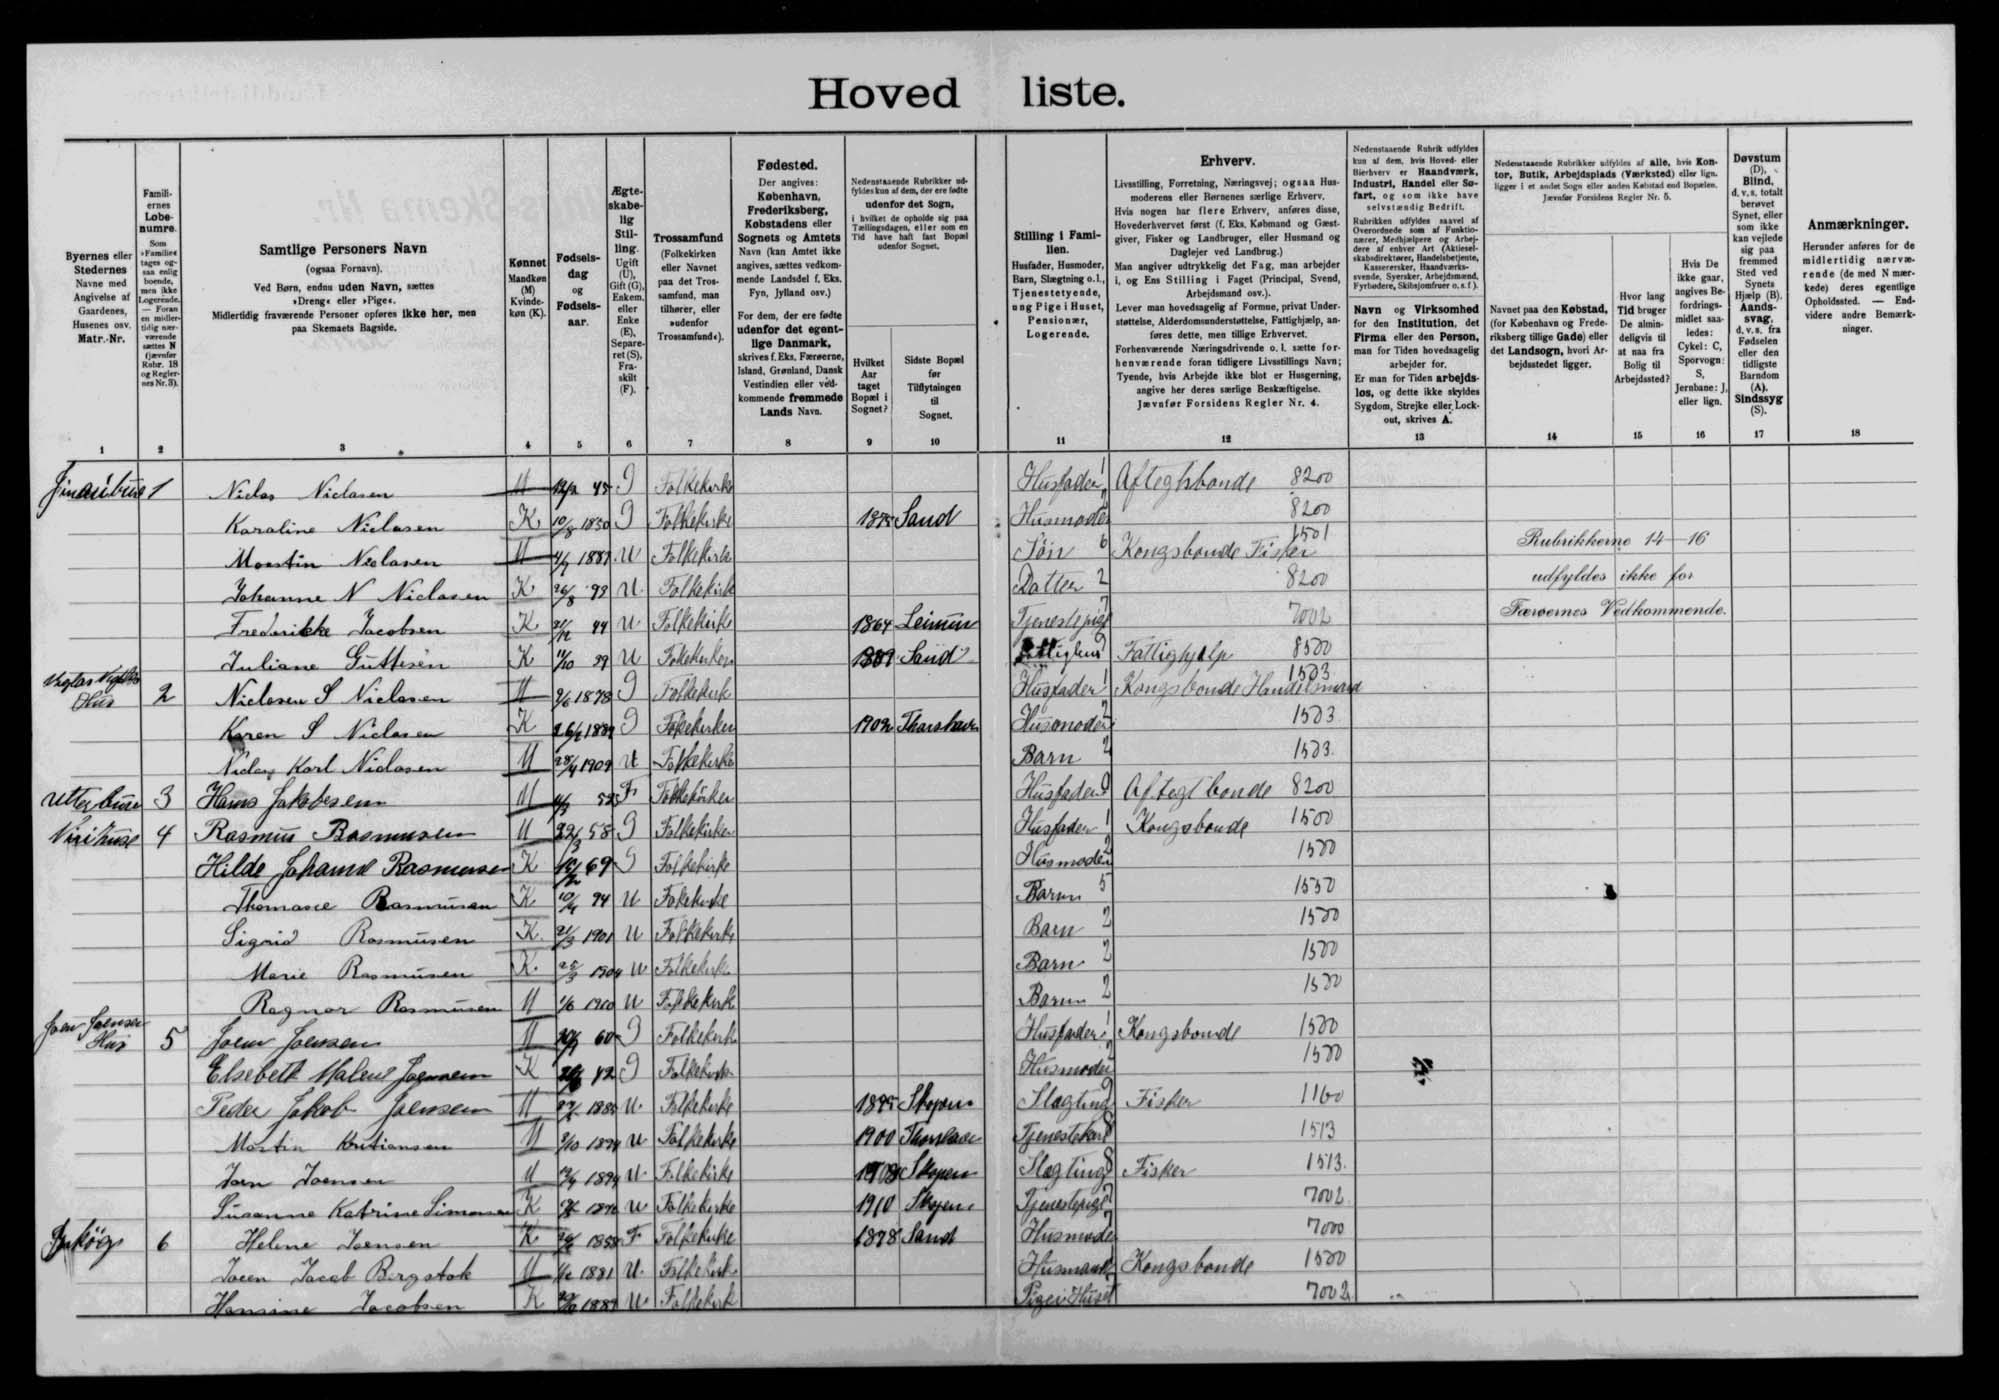 Hoved liste.
Byernes eller Stedernes Navne med Angivelse af Gaardenes, Husenes osv. Matr.-Nr.
Familiernes Løbenumre. Som »Familie« tages ogsaa enlig boende, men ikke Logerende. — Foran en midlertidig nærværende sættes N (jævnfør Rubr. 18 og Reglernes Nr. 3).
Samtlige Personers Navn (ogsaa Fornavn). Ved Børn, endnu uden Navn, sættes »Dreng« eller »Pige«. Midlertidig fraværende Personer opføres ikke her, men paa Skemaets Bagside.
Kønnet Mandkøn (M) Kvindekøn (K).
Fødselsdag og Fødselsaar.
Ægteskabelig Stilling. Ugift (U), Gift (G), Enkem. eller Enke (E), Separeret (S), Fraskilt (F).
Trossamfund (Folkekirken eller Navnet paa det Trossamfund, man tilhører, eller »udenfor Trossamfund«).
Fødested. Der angives: København, Frederiksberg, Købstadens eller Sognets og Amtets Navn (kan Amtet ikke angives, sættes vedkommende Landsdel f. Eks. Fyn, Jylland osv.) For dem, der ere fødte udenfor det egentlige Danmark, skrives f. Eks. Færøerne, Island, Grønland, Dansk Vestindien eller vedkommende fremmede Lands Navn.
Nedenstaaende Rubrikker udfyldes kun af dem, der ere fødte udenfor det Sogn, i hvilket de opholde sig paa Tællingsdagen, eller som en Tid have haft fast Bopæl udenfor Sognet.
Hvilket Aar taget Bopæl i Sognet?
Sidste Bopæl før Tilflytningen til Sognet.
Stilling i Familien. Husfader, Husmoder, Barn, Slægtning o. l., Tjenestetyende, ung Pige i Huset, Pensionær, Logerende.
Erhverv. Livsstilling, Forretning, Næringsvej; ogsaa Husmoderens eller Børnenes særlige Erhverv. Hvis nogen har flere Erhverv, anføres disse, Hovederhvervet først (f. Eks. Købmand og Gæstgiver, Fisker og Landbruger, eller Husmand og Daglejer ved Landbrug.) Man angiver udtrykkelig det Fag, man arbejder i, og Ens Stilling i Faget (Principal, Svend, Arbejdsmand osv.). Lever man hovedsagelig af Formue, privat Understøttelse, Alderdomsunderstøttelse, Fattighjælp, anføres dette, men tillige Erhvervet. Forhenværende Næringsdrivende o. l. sætte forhenværende foran tidligere Livsstillings Navn; Tyende, hvis Arbejde ikke blot er Husgerning, angive her deres særlige Beskæftigelse. Jævnfør Forsidens Regler Nr. 4.
Nedenstaaende Rubrik udfyldes kun af dem, hvis Hoved- eller Bierhverv er Haandværk, Industri, Handel eller Søfart, og som ikke have selvstændig Bedrift. Rubrikken udfyldes saavel af Overordnede som af Funktionærer, Medhjælpere og Arbejdere af enhver Art (Aktieselskabsdirektører, Handelsbetjente, Kasserersker, Haandværkssvende, Syersker, Arbejdsmænd, Fyrbødere, Skibsjomfruer o. s. f.).
Navn og Virksomhed for den Institution, det Firma eller den Person, man for Tiden hovedsagelig arbejder for. Er man for Tiden arbejdsløs, og dette ikke skyldes Sygdom, Strejke eller Lockout, skrives A.
Nedenstaaende Rubrikker udfyldes af alle, hvis Kontor, Butik, Arbejdsplads (Værksted) eller lign. ligger i et andet Sogn eller anden Købstad end Bopælen. Jævnfør Forsidens Regler Nr. 5.
Navnet paa den Købstad, (for København og Frederiksberg tillige Gade) eller det Landsogn, hvori Arbejdsstedet ligger.
Hvor lang Tid bruger De almindeligvis til at naa fra Bolig til Arbejdssted?
Hvis De ikke gaar, angives Befordringsmidlet saaledes: Cykel: C, Sporvogn: S, Jernbane: J, eller lign.
Døvstum (D), Blind, d. v. s. totalt berøvet Synet, eller som ikke kan vejlede sig paa fremmed Sted ved Synets Hjælp (B). Aandssvag, d. v. s. fra Fødselen eller den tidligste Barndom (A). Sindssyg (S).
Anmærkninger. Herunder anføres for de midlertidig nærværende (de med N mærkede) deres egentlige Opholdssted. — Endvidere andre Bemærkninger.
1 2 3 4 5 6 7 8 9 10 11 12 13 14 15 16 17 18
1 Niclas Niclasen M 45 G Folkekirke Husfader 1 Aftegtsbonde 8200
Karoline Niclasen K 10/8 1850 G Folkekirke Sand Husmoder 2 8200
Morstin Niclasen M U Folkekirke Søn 6 Kongsbonde Fisker 1501 Rubrikkerne 14–16
Johanne N Niclasen K 26/8 93 U Folkekirke Datter 2 8200 udfyldes ikke for
Frederikke Jacobsen K 44 U Folkekirke 1864 Tjenestepige 7 7002 Færøernes Vedkommende.
Juliane Guttesen K 11/10 39 U Folkekirken 1889 Sand Fattighjælp 8500
Hus 2 Niclasen S Niclasen M 9/6 1878 G Folkekirke Husfader 1 Kongsbonde Handelsmand 1503
Karen S Niclasen K G Folkekirken 1902 Thorshavn Husmoder 2 1503
Niclas Karl Niclasen M 28/4 1909 U Folkekirke Barn 2 1503
3 Hans Jakobsen M F Folkekirken Husfader Aftegtbonde 8200
4 Rasmus Rasmusen M 22/3 58 G Folkekirken Husfader 1 Kongsbonde 1500
Hilde Johanne Rasmusen K 69 G Folkekirke Husmoder 2 1500
Thomasie Rasmusen K 94 U Folkekirke Barn 5 1550
Sigrid Rasmusen K 21/3 1901 U Folkekirke Barn 2 1500
Marie Rasmusen K. 25/3 1904 U Folkekirke Barn 2 1500
Ragnar Rasmusen M 1/6 1910 U Folkekirke Barn 2 1500
Joen Joensen Hus 5 Joen Joensen M 60 G Folkekirke Husfader 1 Kongsbonde 1500
Elsebeth Malene Joensen K G Folkekirke Husmoder 2 1500
Peder Jakob Joensen M U. Folkekirke 1895 Skopen Slægting 9 Fisker 1160
Mortin Kristiansen M 1894 U Folkekirke 1900 Thorshavn Tjenestekarl 8 1513
Joen Joensen M 1894 U. Folkekirke 1908 Skopen Slægting 8 Fisker 1513.
Susanne Katrine Simonsen K U Folkekirke 1910 Skopen Tjenestepige 7 7002
6 Helene Joensen K F Folkekirke 1878 Sand Husmoder 7 7000
Joen Jacob Bergstak M 1881 U. Folkekirke Husmand Kongsbonde 1500
Hansine Jacobsen K 1889 U Folkekirk Pige i Huset 7002